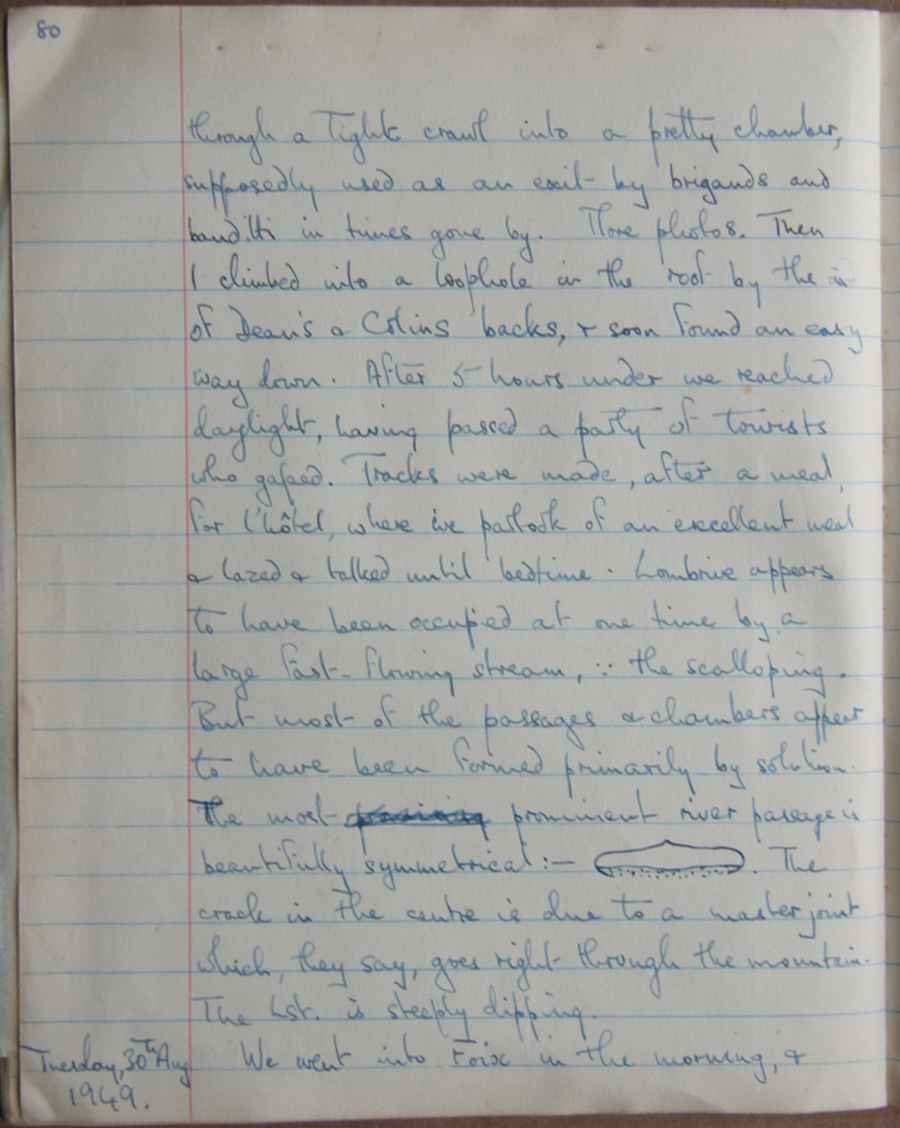 80
through a tight crawl into a pretty chamber,
supposedly used as an exit by brigands and
banditti in times gone by. More photos. Then
I climbed into a loophole in the roof by the
of Dean's & Colins' backs, & soon found an easy
way down. After 5 hours under we reached
daylight, having passed a party of tourists
who gaped. Tracks were made, after a meal,
for l'hôtel, where we partook of an excellent meal
& lazed & talked until bedtime. Lombrive appears
to have been occupied at one time by a
large fast-flowing stream, ∵ the scalloping.
But most of the passages & chambers appear
to have been formed primarily by solution.
The most prominent river passage is
beautifully symmetrical :- . The
crack in the centre is due to a master joint
which, they say, goes right through the mountain.
The Lst. is steeply dipping.
Tuesday, 30th Aug 1949. We went into Foix in the morning, &